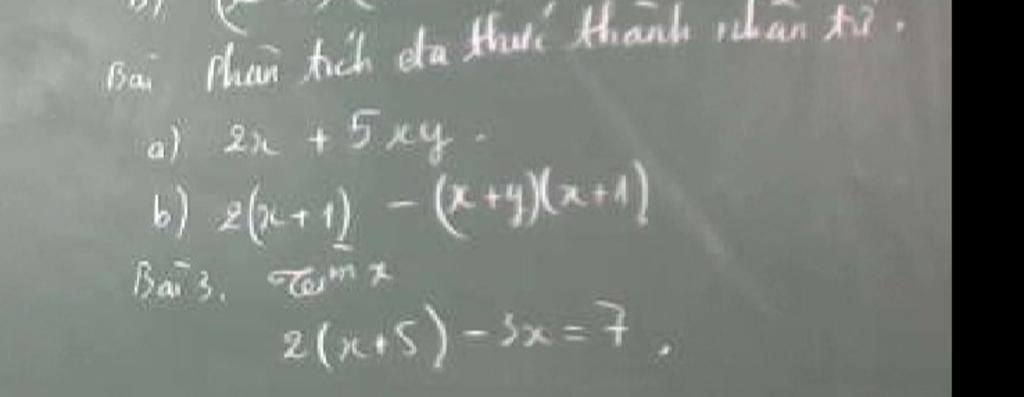 Bài Phân tích đa thức thành nhân tử.
a) 2x + 5xy.
b) 2(x+1) - (x+y)(x+1)
Bài 3. Tìm x
2(x+5) - 3x = 7.